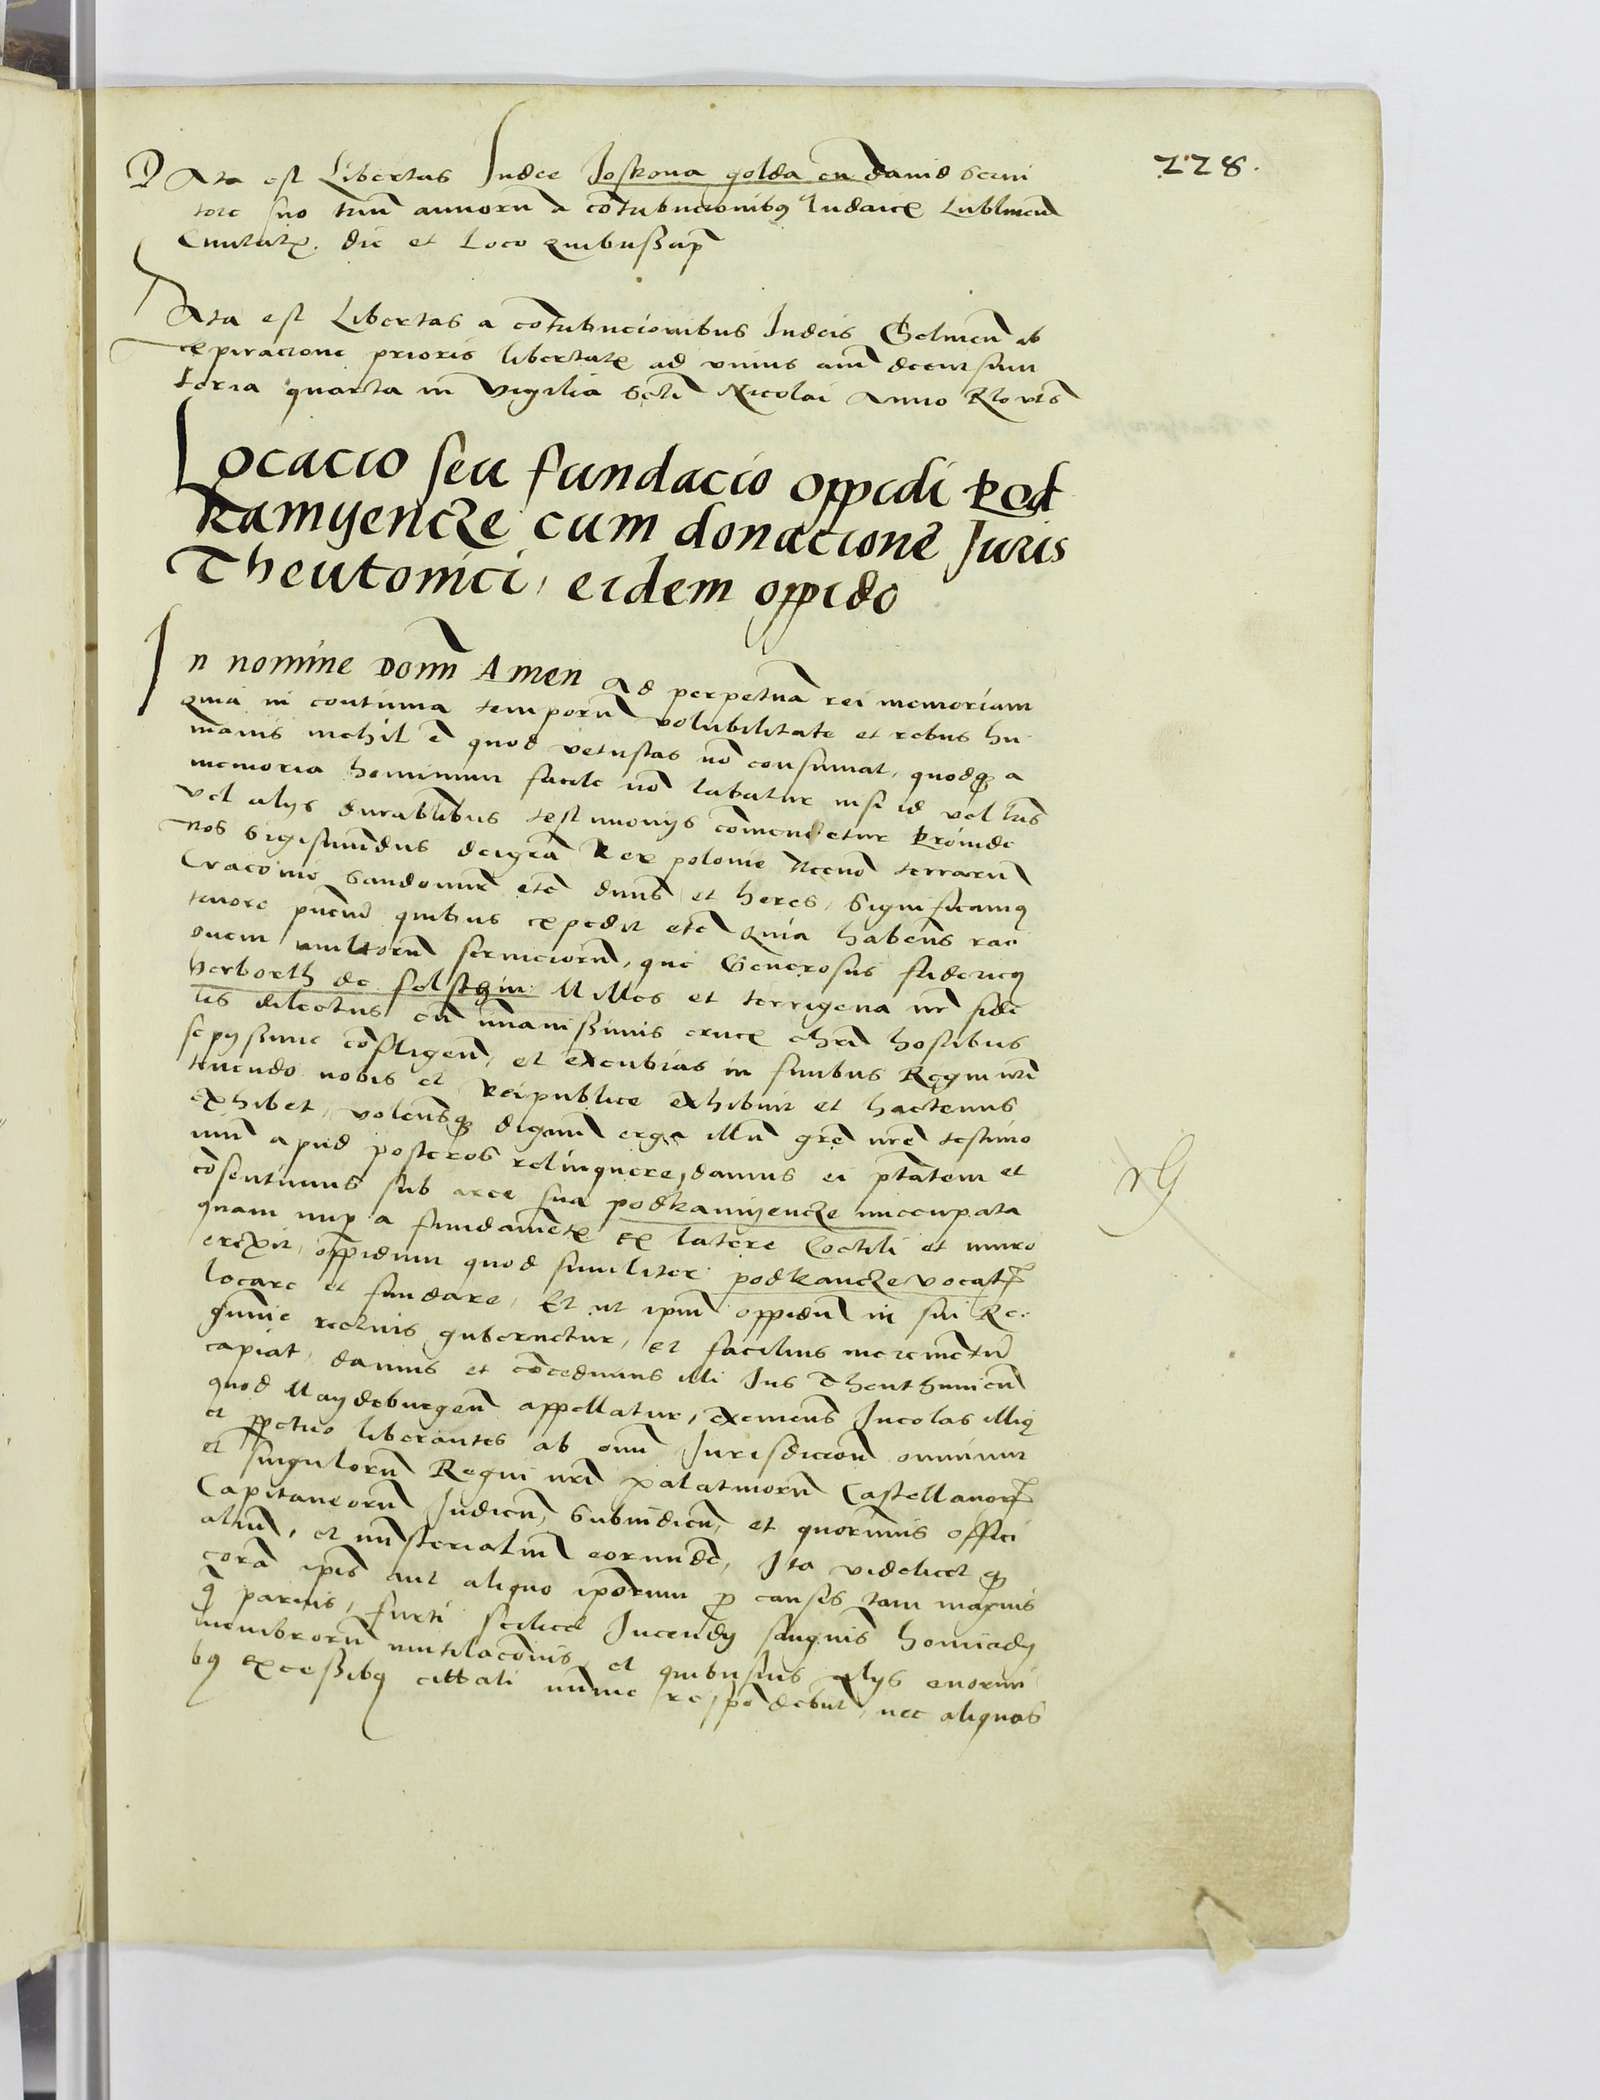 228.
Data est Libertas Judee Joskowa golda cu david servi
tore suo triu annoru a cotribucionibus Iudaice Lublinen
Civitatis. die et Loco quibus supra
Data est Libertas a cotribucionibus Judeis Belnen ab
expiracione prioris libertatis ad unius anni decursum
feria quarta in vigilia Scti Nicolai Anno
Locacio seu fundacio oppidi Pod
Kamyencze cum donacione Juris
Theutonici, eidem oppido
In nomine Domi Amen Ad perpetua rei memoriam
quia in continua temporu volubilitate et rebus hu
manis nichil e quod vetustas no consumat, quodque a
memoria hominum facile no labatur nisi id vel lris
vel alys durabilibus testimonys comendetur Proinde
nos Sigismundus dei gra Rex polonie Necno terraru
Cracovie Sandomir etc dnus et heres, Significamus
tenore pntium quibus expedit etc Quia habens raci
onem multoru serviciorum, que Generosus fridericus
herborth de felsthyn Milles et terrigena nr fide
lis dilectus cu imanissimis crucis chri hostibus
sepyssime confligen, et excubias in finibus Regni nri
tenendo nobis et Reipublice exhibuit et hactenus
exhibet, volensque dignum erga illu gre nre testimo
niu apud posteros relinquere, damus ei ptatem et
cosentimus sub arce sua podkamyencze nuccupata
quam nup a fundamentis ex latere Coctili et muro
erexit, oppidum quod similiter podkancze vocatur
locare et fundare, Et ut ipsum oppidu in sui Re:
gimie rectius gubernetur, et facilius incrementu
capiat, damus et cocedimus illi Jus Theuthunicu
quod Maydeburgen appellatur, eximens Jncolas illius
et ppetuo liberantes ab omi Jurisdicion omnium
et singuloru Regni nri palatinoru Castellanorum
Capitaneoru Judicu, Subiudicu, et quorumvis offici
aliu, et ministerialiu eorunde, Ita videlicet quod
cora ipsis aut aliquo ipsorum pro causis tam magnis
quam parvis, furti scilicet Jncendy sanguis homicidy
membroru mutilacionis, et quibusvis alys enormi
bus excessibus cittati mime respodebunt, nec aliquas